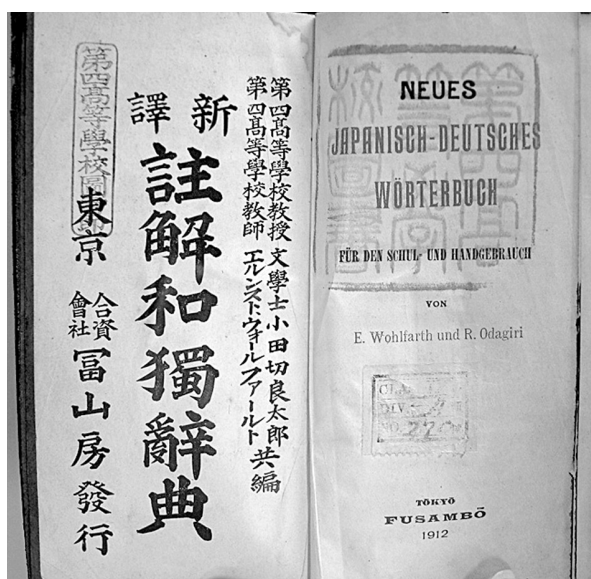 第四髙等學校教授 文學士 小田切良太郎
第四髙等學校教師 エルンスト、ウォールファールト 共編
新譯
註解和獨辭典
東京 合資會社 冨山房發行
第四高等學校圖
NEUES
JAPANISCH-DEUTSCHES
WÖRTERBUCH
FÜR DEN SCHUL- UND HANDGEBRAUCH
VON
E. Wohlfarth und R. Odagiri
CLA
DIV.
NO.
TŌKYŌ
FUSAMBŌ
1912